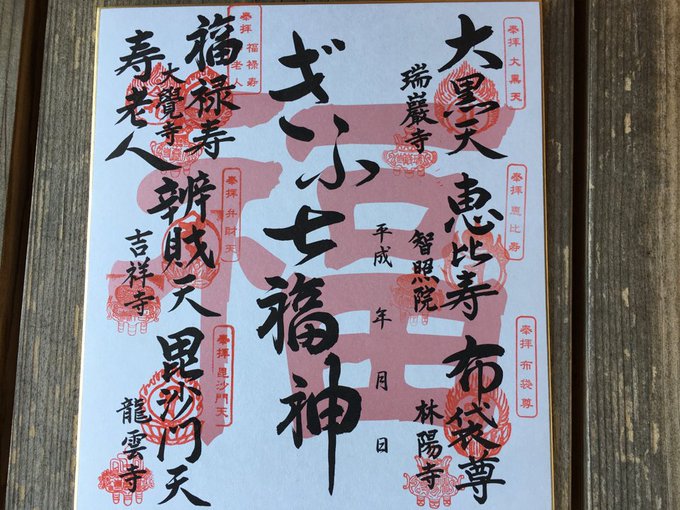 奉拝 大黒天
大黒天
瑞巖寺
奉拝 恵比寿
恵比寿
智照院
奉拝 布袋尊
布袋尊
林陽寺
ぎふ七福神
平成 年 月 日
奉拝 福禄寿 老人
福禄寿
寿老人
大覺寺
奉拝 弁財天
辨財天
吉祥寺
奉拝 毘沙門天
毘沙門天
龍雲寺
福